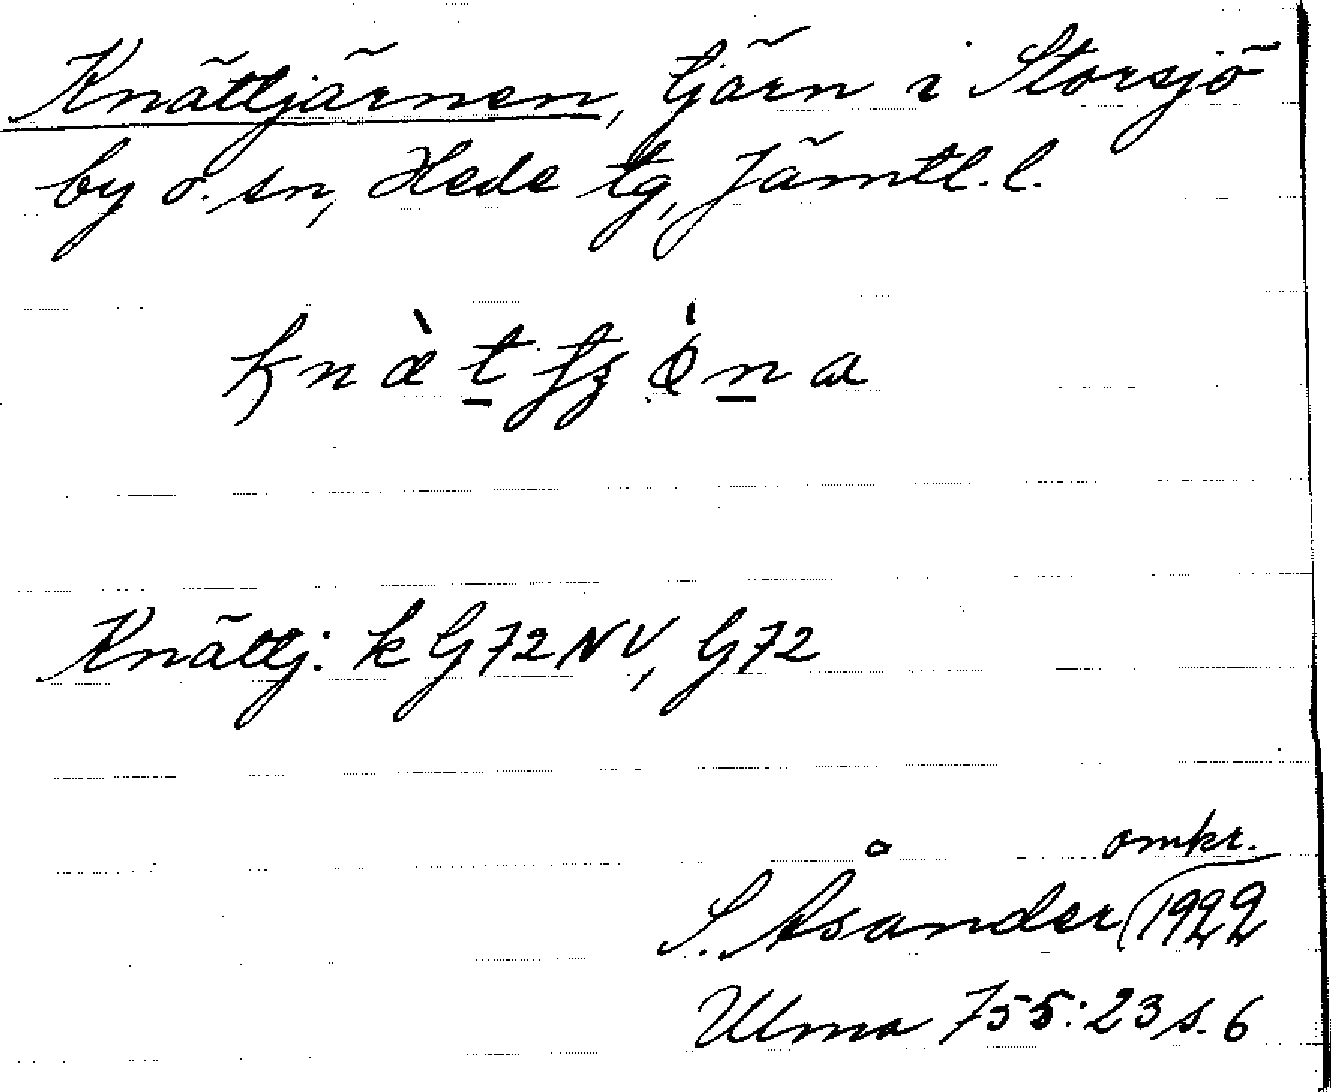 Knättjärnen, tjärn i Storsjö
by o. sn, Hede tg, Jämtl. l.
Knättj: k G72NV, G72
omkr.
S. Åsander 1922
Ulma 755:23 s. 6